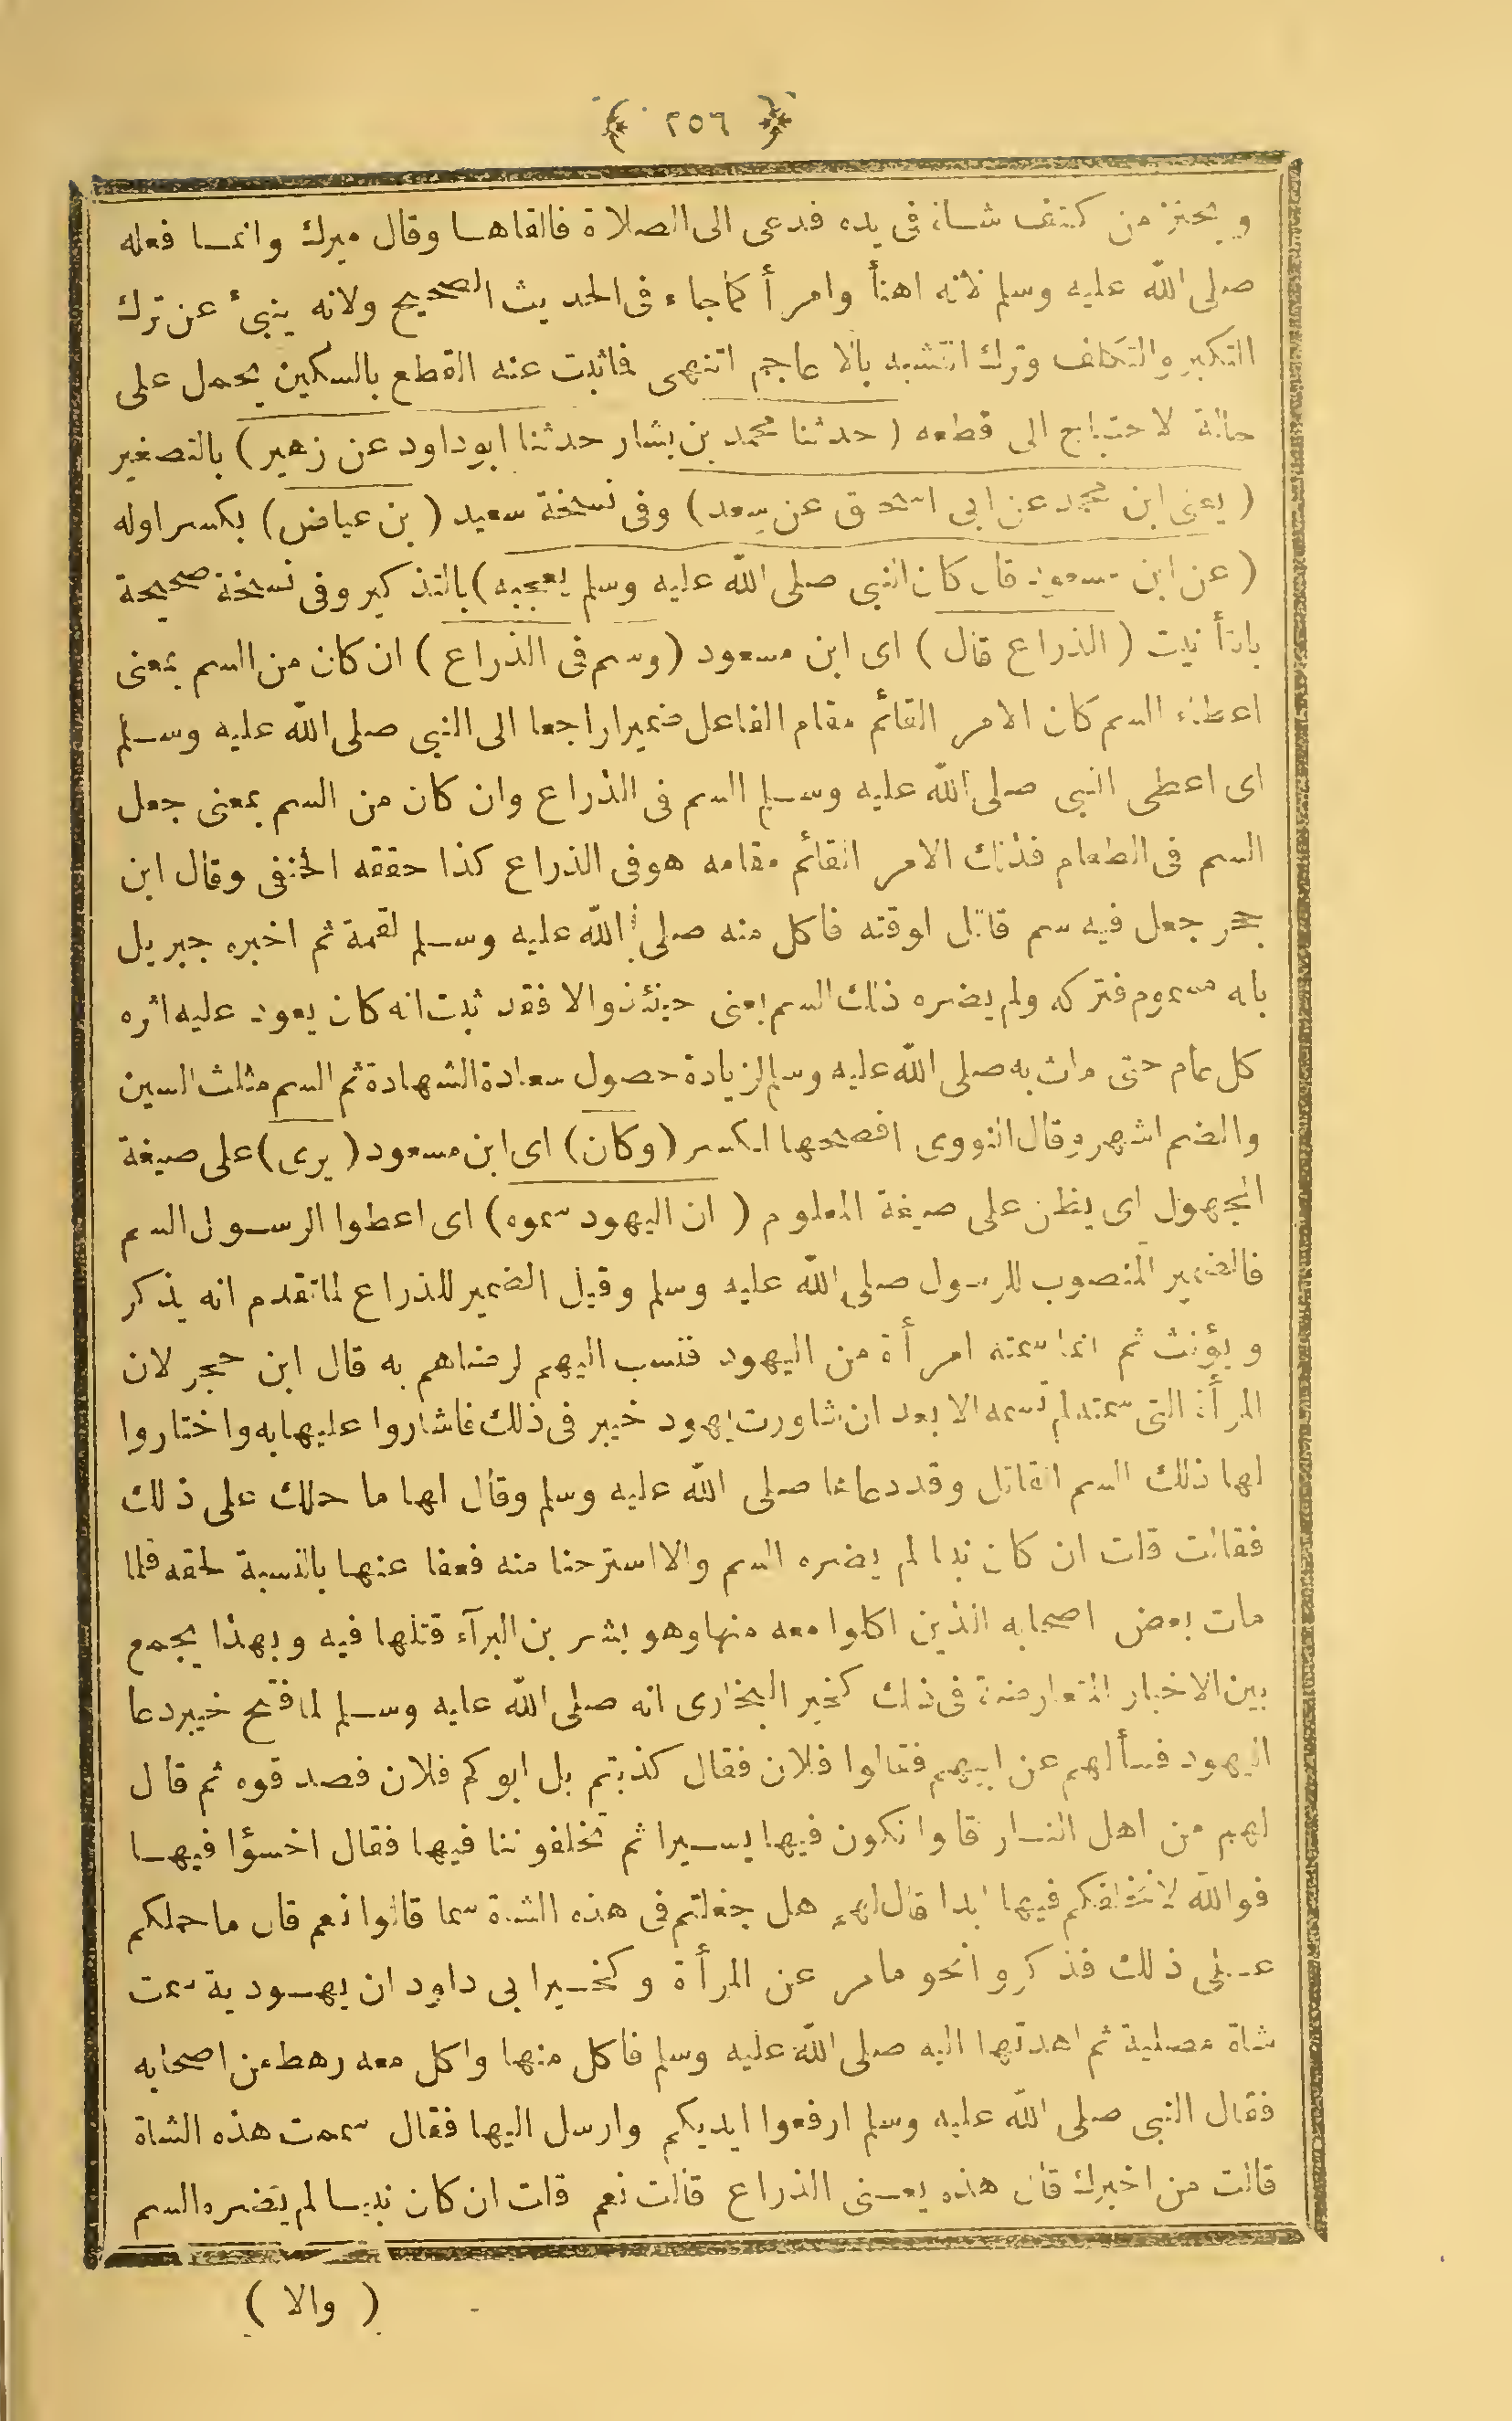 ﴿ ٢٥٦ ﴾
و يحتز من كتف شاة فى يده فدعى الى الصلاة فالقاها وقال ميرك وانما فعله
صلى الله عليه وسلم لانه اهنأ وامرأ كماجاء فى الحديث الصحيح ولانه ينبئ عن ترك
التكبر والتكلف وترك التشبه بالاعاجم انتهى فاثبت عنه القطع بالسكين يحمل على
حالة لاحتياج الى قطعه ( حدثنا محمد بن بشار حدثنا ابوداود عن زهير ) بالتصغير
( يعنى ابن محمد عن ابى اسحق عن سعد ) وفى نسخة سعيد ( بن عياض ) بكسر اوله
( عن ابن مسعود قال كان النبى صلى الله عليه وسلم يعجبه ) بالتذكير وفى نسخة صحيحة
بالتأنيث ( الذراع قال ) اى ابن مسعود ( وسم فى الذراع ) ان كان من السم بمعنى
اعطاء السم كان الامر القائم مقام الفاعل ضميرا راجعا الى النبى صلى الله عليه وسلم
اى اعطى النبى صلى الله عليه وسلم السم فى الذراع وان كان من السم بمعنى جعل
السم فى الطعام فذلك الامر القائم مقامه هو فى الذراع كذا حققه الحنفى وقال ابن
حجر جعل فيه سم قاتل لوقته فاكل منه صلى الله عليه وسلم لقمة ثم اخبره جبريل
بانه مسموم فتركه ولم يضره ذلك السم يعنى حينئذ والا فقد ثبت انه كان يعود عليه اثره
كل عام حتى مات به صلى الله عليه وسلم لزيادة حصول سعادة الشهادة ثم السم مثلث السين
والضم اشهر وقال النووى افصحها الكسر ( وكان ) اى ابن مسعود ( يرى ) على صيغة
المجهول اى يظن على صيغة المعلوم ( ان اليهود سموه ) اى اعطوا الرسول السم
فالضمير المنصوب للرسول صلى الله عليه وسلم وقيل الضمير للذراع لما تقدم انه يذكر
و يؤنث ثم انما سمته امرأة من اليهود فنسب اليهم لرضاهم به قال ابن حجر لان
المرأة التى سمته لم تسمه الا بعد ان شاورت يهود خيبر فى ذلك فاشاروا عليها به واختاروا
لها ذلك السم القاتل وقد دعاها صلى الله عليه وسلم وقال لها ما حملك على ذلك
فقالت قلت ان كان نبيا لم يضره السم والا استرحنا منه فعفا عنها بالنسبة لحقه فلما
مات بعض اصحابه الذين اكلوا معه منها وهو بشر بن البرآء قتلها فيه و بهذا يجمع
بين الاخبار المتعارضة فى ذلك كخبر البخارى انه صلى الله عليه وسلم لما فتح خيبر دعا
اليهود فسألهم عن ابيهم فقالوا فلان فقال كذبتم بل ابوكم فلان فصدقوه ثم قال
لهم من اهل النار قالوا نكون فيها يسيرا ثم تخلفوننا فيها فقال اخسؤا فيها
فوالله لا نخلفكم فيها ابدا قال لهم هل جعلتم فى هذه الشاة سما قالوا نعم قال ماحملكم
على ذلك فذكروا نحو ما مر عن المرأة وكخبر ابى داود ان يهودية سمت
شاة مصلية ثم اهدتها اليه صلى الله عليه وسلم فاكل منها واكل معه رهط من اصحابه
فقال النبى صلى الله عليه وسلم ارفعوا ايديكم وارسل اليها فقال سممت هذه الشاة
قالت من اخبرك قال هذه يعنى الذراع قالت نعم قلت ان كان نبيا لم يضره السم
( والا )